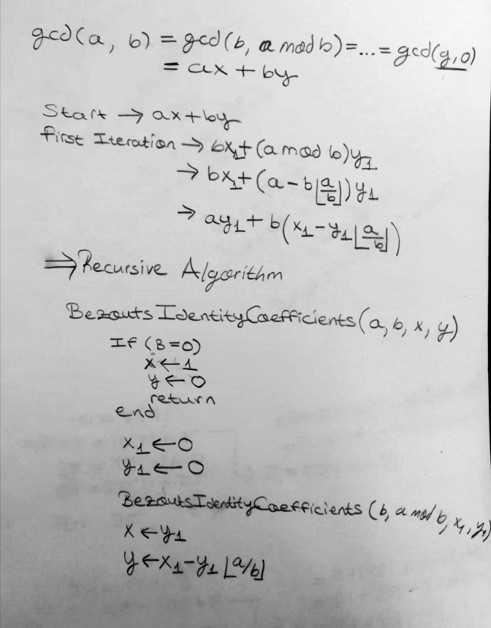 gcd(a, b) = gcd(b, a mod b) = ... = gcd(g, 0)
= ax + by
Start → ax + by
First Iteration → bx₁ + (a mod b)y₁
→ bx₁ + (a - b⌊a/b⌋)y₁
→ ay₁ + b(x₁ - y₁⌊a/b⌋)
⇒ Recursive Algorithm
BezoutsIdentityCoefficients(a, b, x, y)
If (B=0)
x ← 1
y ← 0
return
end
x₁ ← 0
y₁ ← 0
BezoutsIdentityCoefficients (b, a mod b, x₁, y₁)
x ← y₁
y ← x₁ - y₁ ⌊a/b⌋